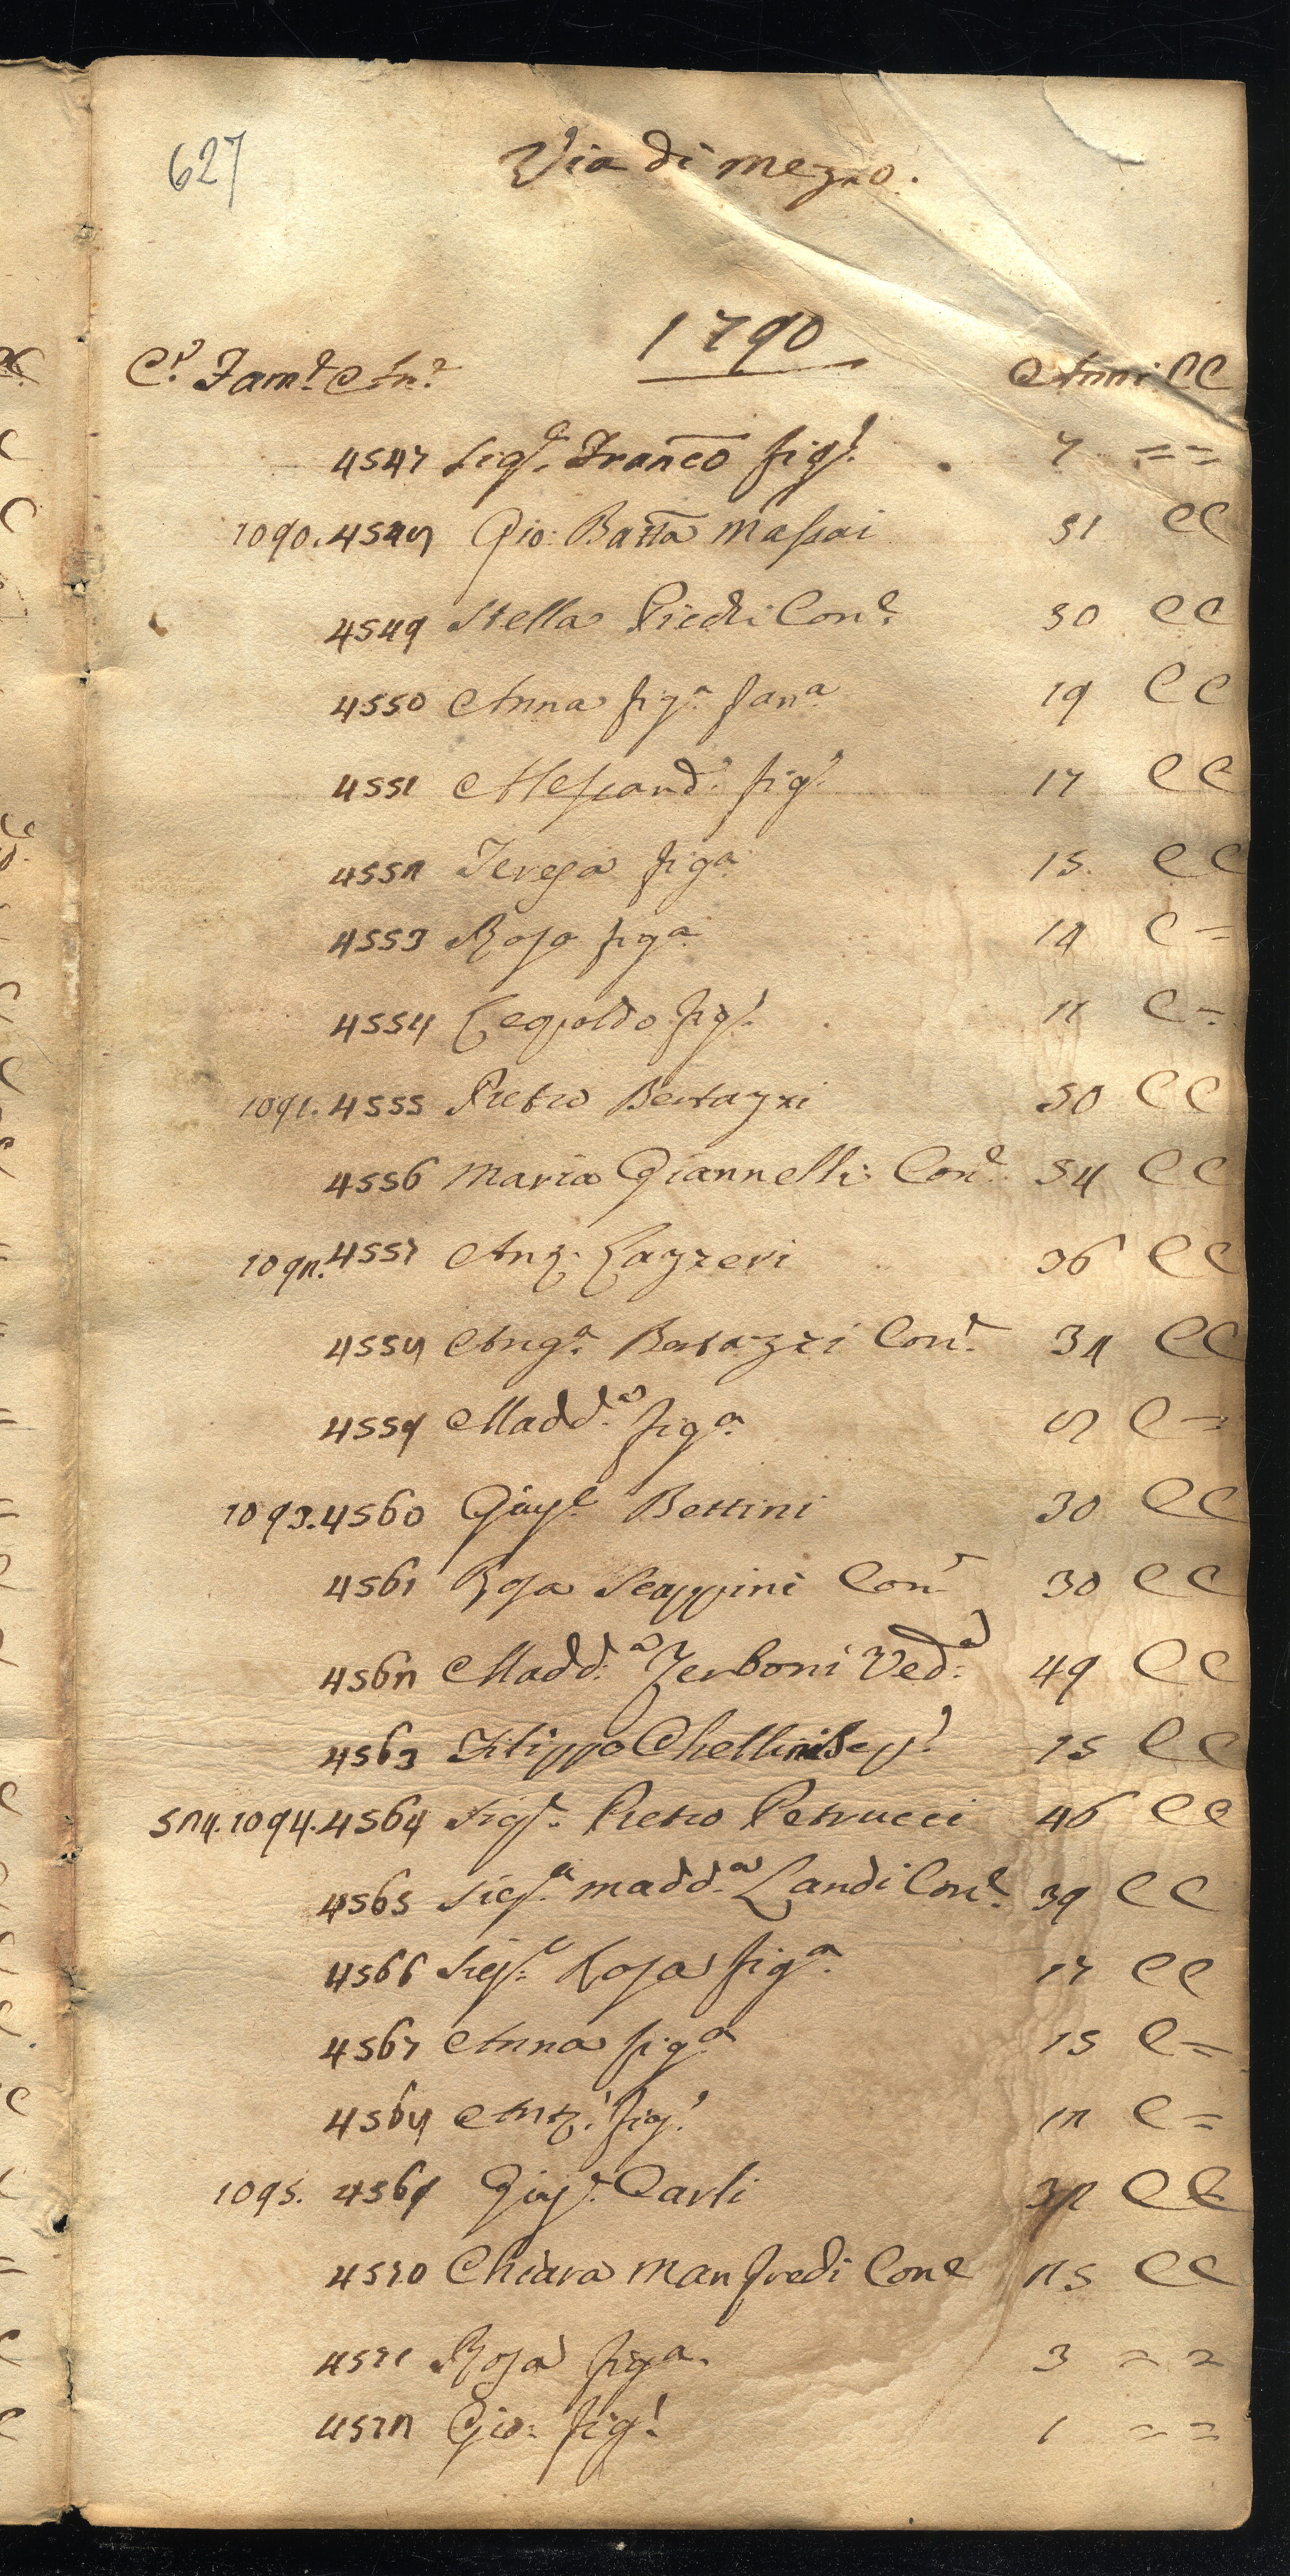 627
Via di mezzo.
1790
C.e Fam.e An.e Anni CC
4547 Sig.e Franco fig.o 7 = =
1090. 4548 Gio: Batta Massai 51 CC
4549 Stella Piedi Con.e 50 CC
4550 Anna fig.a fan.a 19 CC
4551 Alessand.o fig.o 17 CC
4552 Teresa fig.a 15. CC
4553 Rosa fig.a 14 C =
4554 Leopoldo fig.o 11 C =
1091. 4555 Pietro Bertazzi 50 CC
4556 Maria Giannelli Con.e 54 CC
1092. 4557 Ant. Lazzeri 36 CC
4558 Ang.a Bertazzi Con.e 32 CC
4559 Madd.a fig.a 8 C =
1093. 4560 Gius.e Bettini 30 CC
4561 Rosa Scappini Con.e 30 CC
4562 Madd.a Zerboni Ved.a 49 CC
4563 Filippo Chellini 15 CC
524. 1094. 4564 Sig.e Pietro Petrucci 46 CC
4565 Sig.a Madd.a Landi Con.e 39 CC
4566 Sig.a Rosa fig.a 17 CC
4567 Anna fig.a 15 C =
4568 Ant.o fig.o 12 C =
1095. 4569 Gius.e Carli 32 CC
4570 Chiara Manfredi Con.e 25 CC
4571 Rosa fig.a 3 = =
4572 Gio: fig.o 1 = =